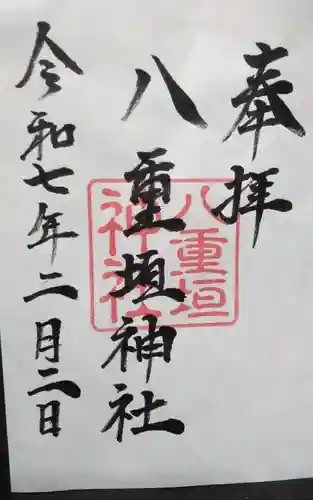 奉拝
八重垣神社
八重垣
神社
令和七年二月二日